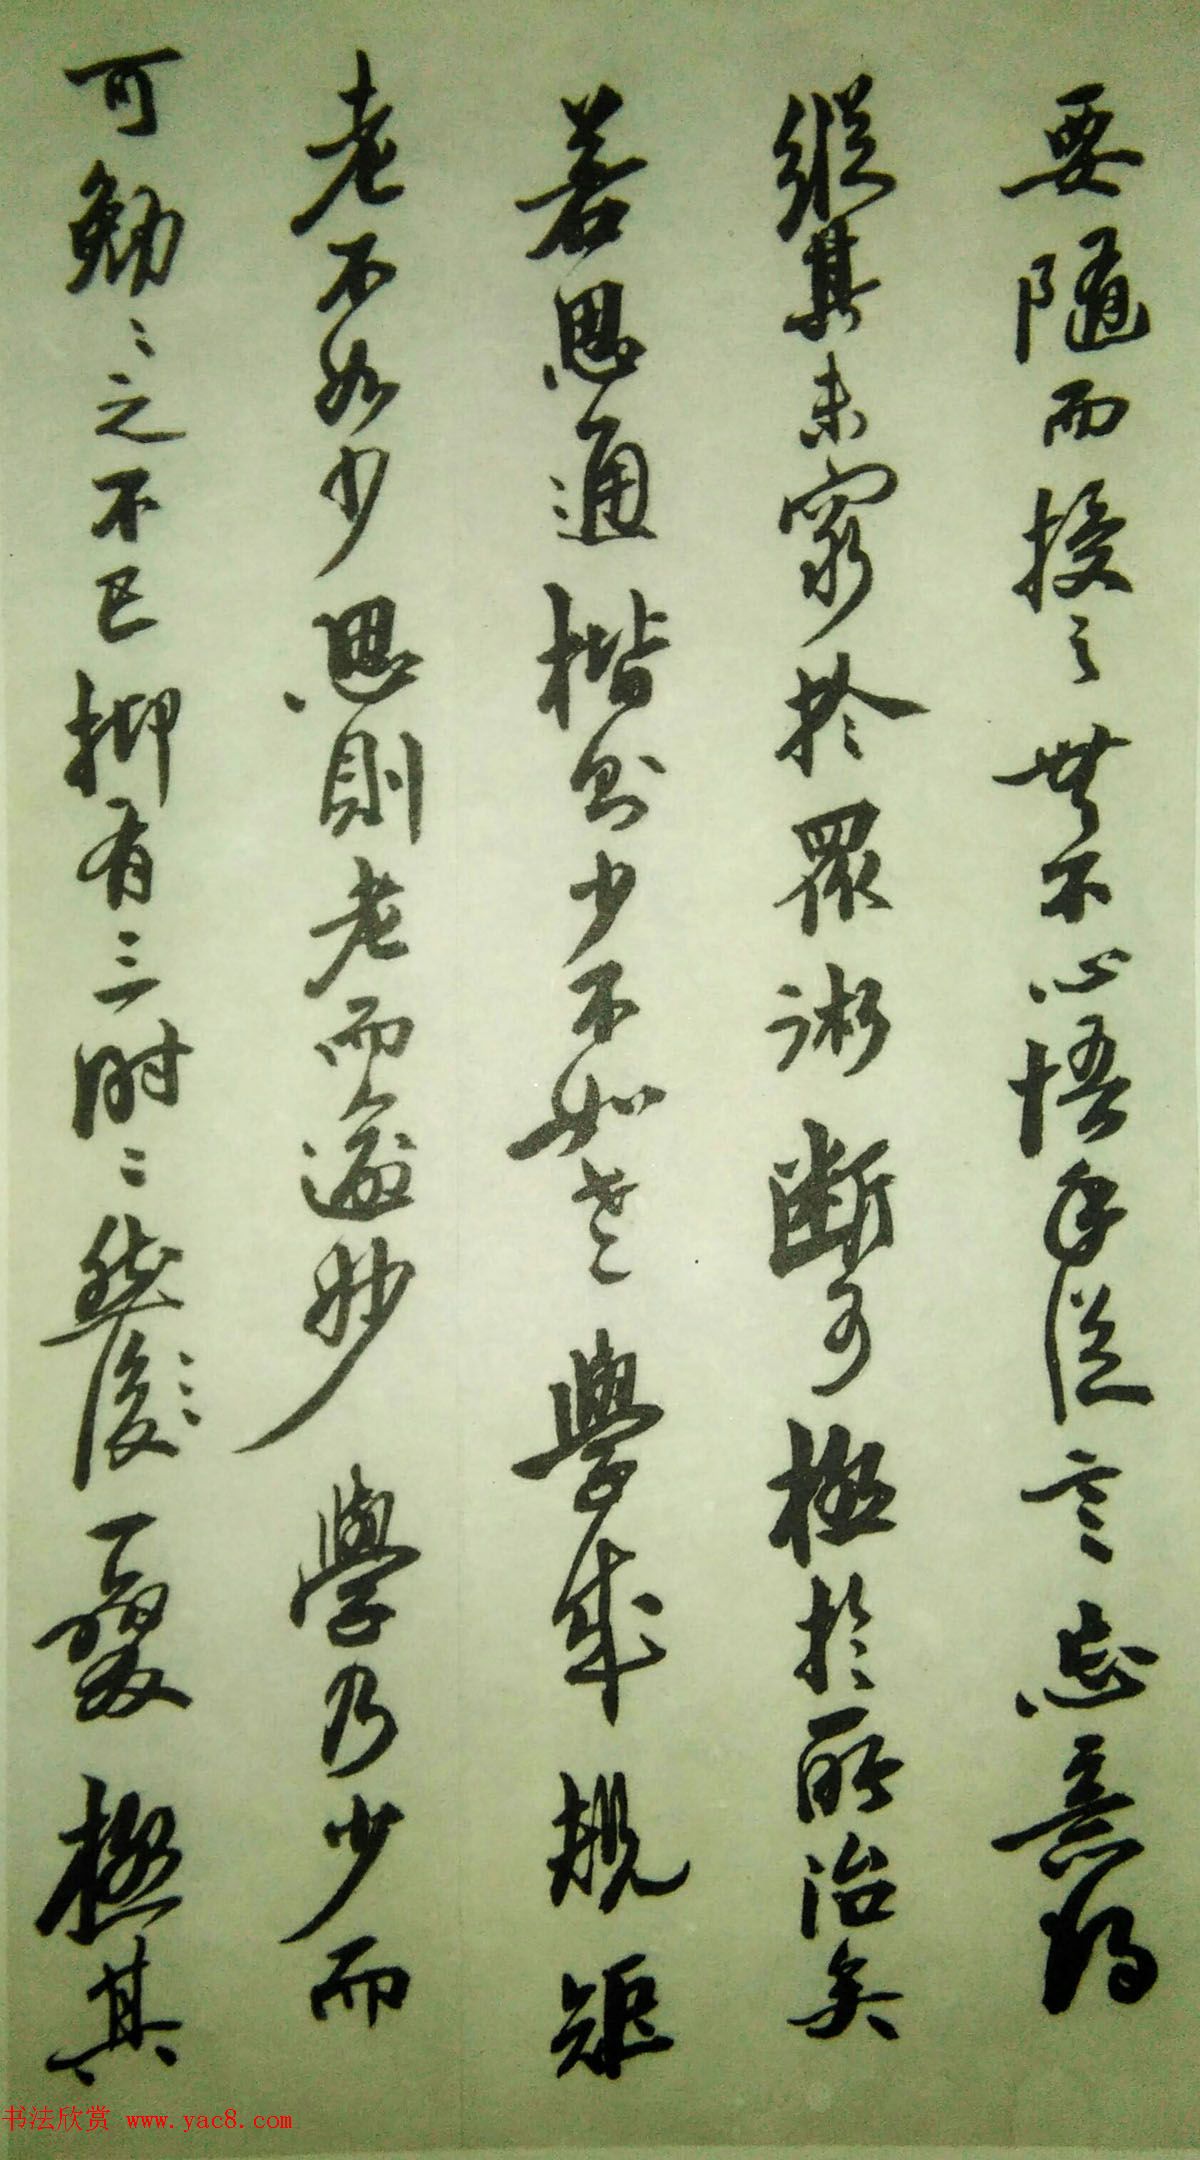 要隨而授之無不心悟手從言忘意得
縱其未窮於眾術斷可極於所治矣
若思通楷則少不如老學成規矩
老不如少思則老而逾妙學乃少而
可勉〻之不已抑有三時〻然後一變極其
书法欣赏 www.yac8.com